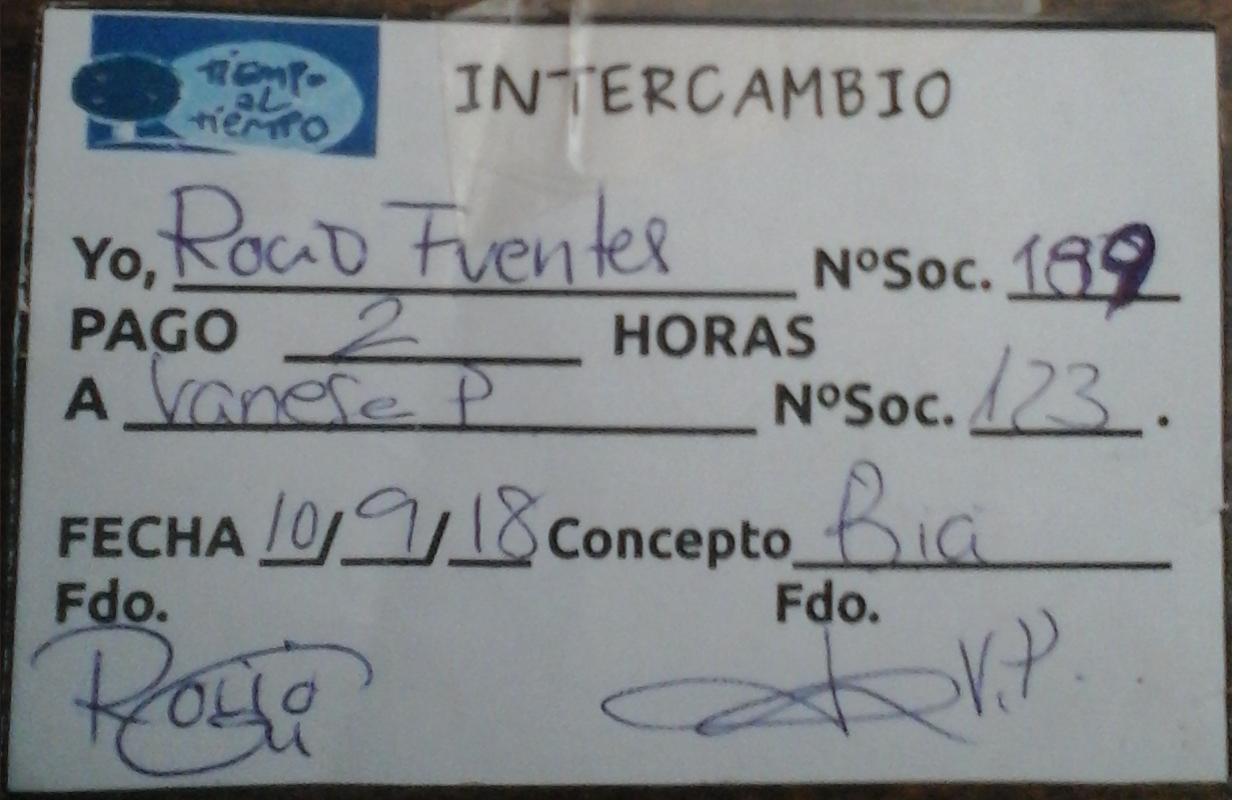 tiempo
al
tiempo
INTERCAMBIO
Yo, Rocio Fuentes NºSoc. 189
PAGO 2 HORAS
A Vanese P NºSoc. 123.
FECHA 10/9/18 Concepto Bici
Fdo. Fdo.
Rocio V.P.